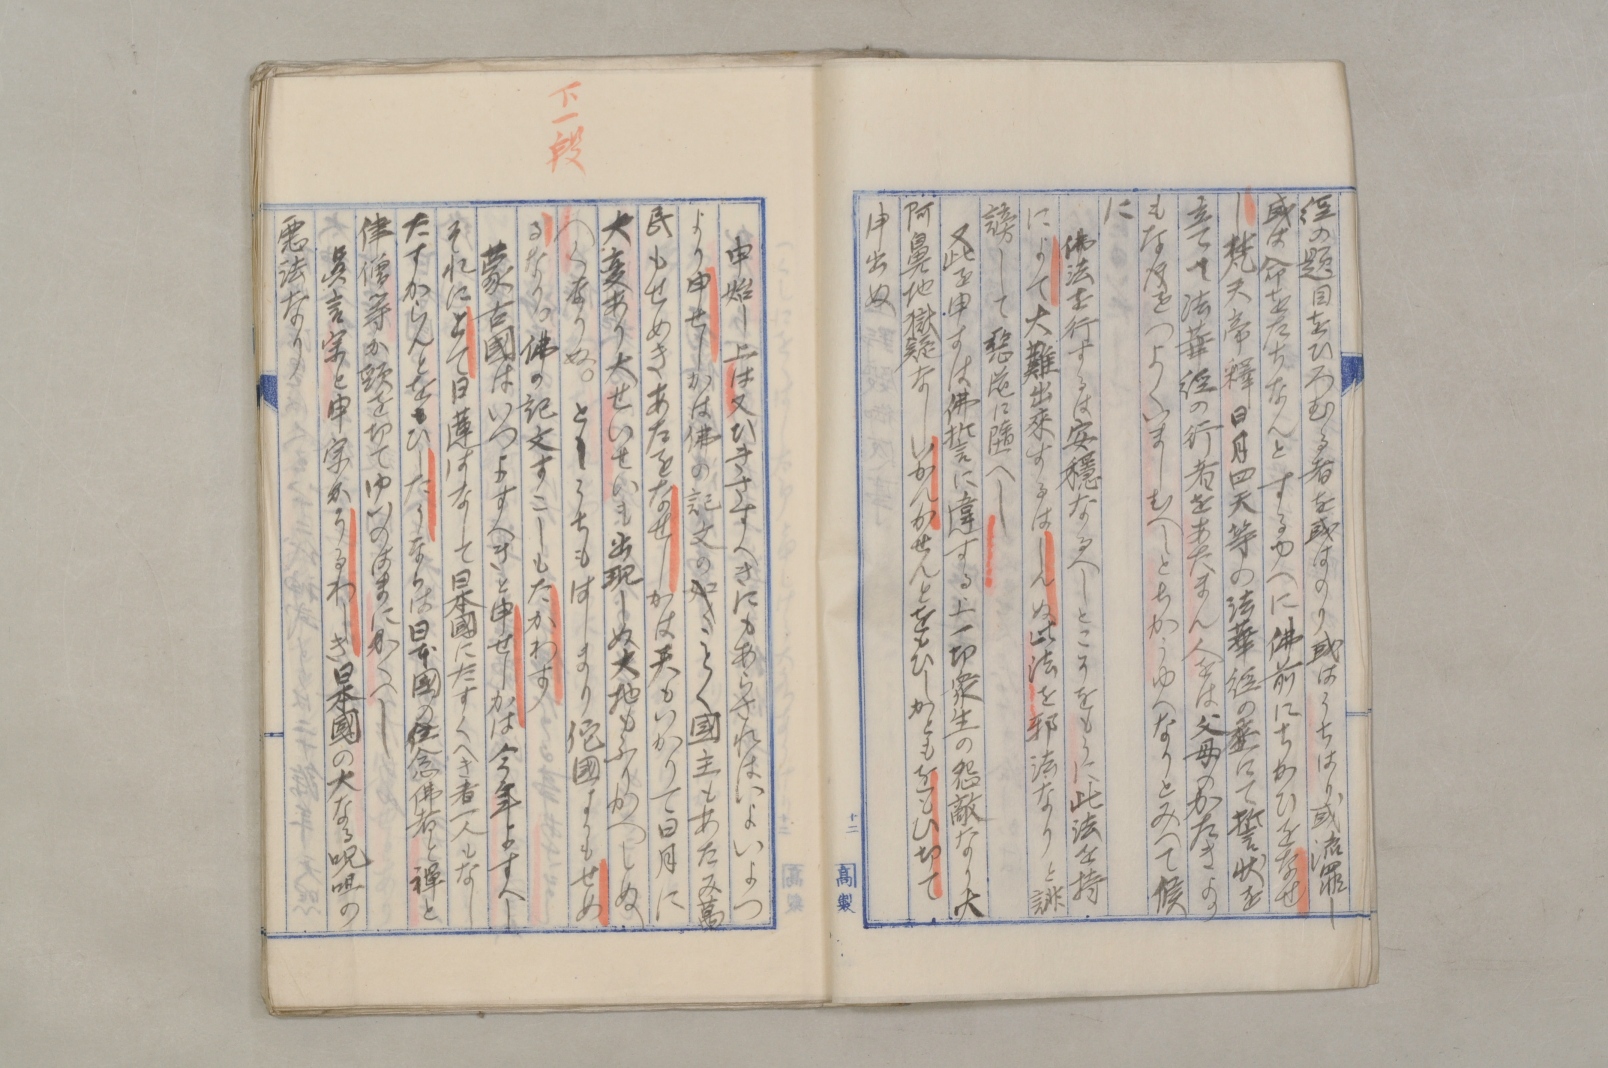 経の題目をひろむる者を或はのり或はうちはり或流罪し
或は命をたちなんとするゆへに佛前にちかひをなせ
し梵天帝釋日月四天等の法華経の座にて誓状を
立てて法華経の行者をあたまん人をは父母のかたきよ
りもなをつよくいましむへしとちかうゆへなりとみへて候
に
佛法を行するは安穏なるへしところをもうに此法を持
によて大難出来するはしんぬ此法を邪法なりと誹
謗して悪道に堕へし
又此を申すは佛誓に違する上一切衆生の怨敵なり大
阿鼻地獄疑なしいかんかせんとをもひしかともをもひ切て
申出ぬ
十二
高製
下一段
申始し上は又ひきさすへきにもあらされはいよいよつ
より申せしかは佛の記文のことく國主もあたみ萬
民もせめきあたをなせしかは天もいかりて日月に
大変あり大せいせいも出現しぬ大地もふりかへしぬ
へくなりぬ。としうちもはしまり他國よりもせめ
るなり。佛の記文すこしもたかわす
蒙古國はいつよすへきと申せしかは今年よすへし
それにとて日蓮はなして日本國にたすくへき者一人もなし
たすからんとをもひしたうならは日本國の念佛者と禅と
律僧等か頸を切てゆいのはまにかくへし
眞言宗と申宗かうるわしき日本國の大なる呪咀の
悪法なり